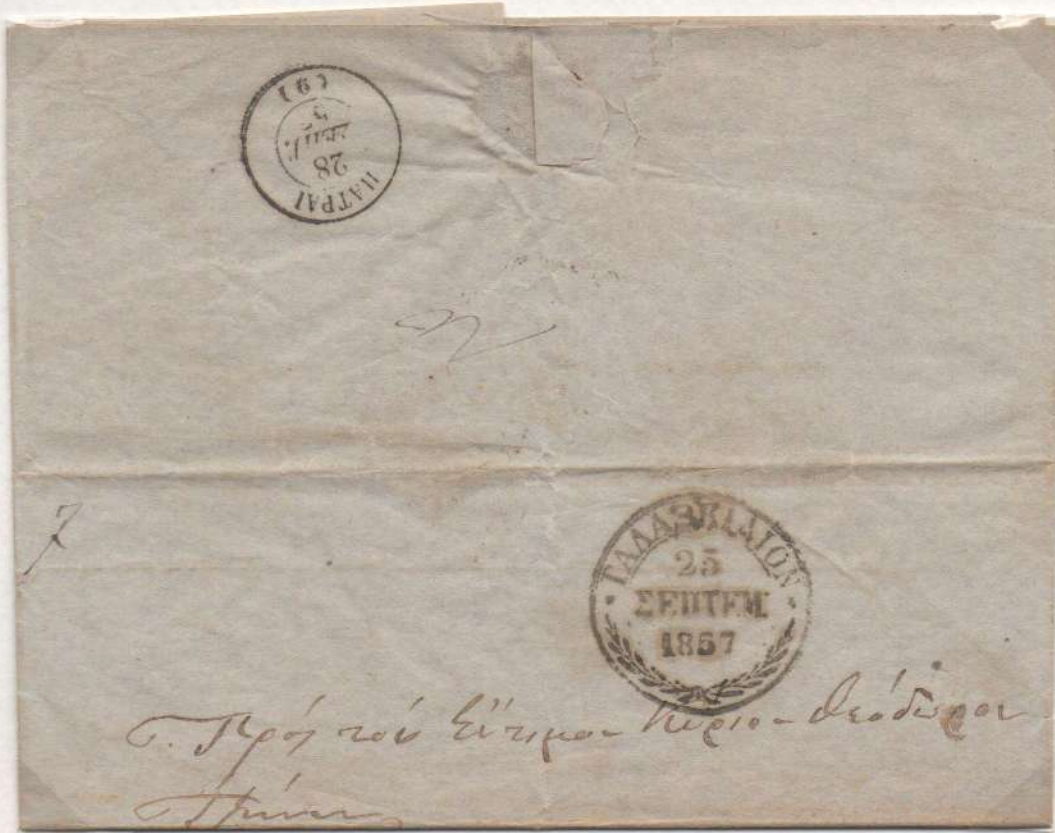 ΠΑΤΡΑΙ
28
ΣΕΠΤ.
5
(9)
ΓΑΛΑΞΕΙΔΙΟΝ
25
ΣΕΠΤΕΜ
1857
Πρός τόν Εὔτιμον Κύριον Θεόδωρον